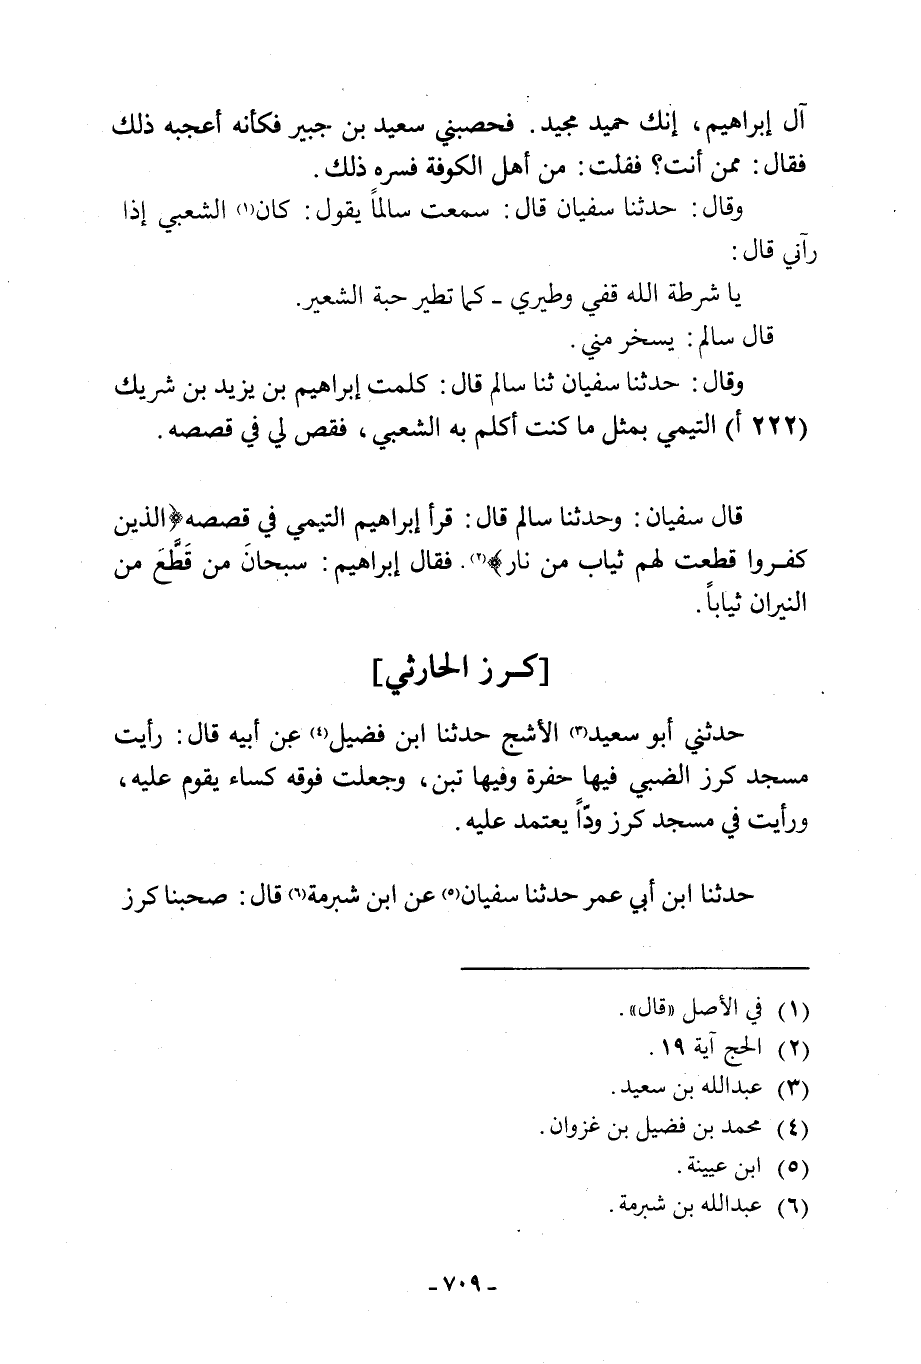 آل إبراهيم، إنك حميد مجيد. فحصبني سعيد بن جبير فكأنه أعجبه ذلك
فقال: ممن أنت؟ فقلت: من أهل الكوفة فسره ذلك.
وقال: حدثنا سفيان قال: سمعت سالماً يقول: كان(١) الشعبي إذا
رآني قال:
يا شرطة الله قفي وطيري ـ كما تطير حبة الشعير.
قال سالم: يسخر مني.
وقال: حدثنا سفيان ثنا سالم قال: كلمت إبراهيم بن يزيد بن شريك
(٢٢٢ أ) التيمي بمثل ما كنت أكلم به الشعبي، فقص لي في قصصه.
قال سفيان: وحدثنا سالم قال: قرأ إبراهيم التيمي في قصصه ﴿الذين
كفروا قطعت لهم ثياب من نار﴾(٢). فقال إبراهيم: سبحانَ من قَطَّعَ من
النيران ثياباً.
[كرز الحارثي]
حدثني أبو سعيد(٣) الأشج حدثنا ابن فضيل(٤) عن أبيه قال: رأيت
مسجد كرز الضبي فيها حفرة وفيها تبن، وجعلت فوقه كساء يقوم عليه،
ورأيت في مسجد كرز ودّاً يعتمد عليه.
حدثنا ابن أبي عمر حدثنا سفيان(٥) عن ابن شبرمة(٦) قال: صحبنا كرز
(١) في الأصل «قال».
(٢) الحج آية ١٩.
(٣) عبدالله بن سعيد.
(٤) محمد بن فضيل بن غزوان.
(٥) ابن عيينة.
(٦) عبدالله بن شبرمة.
- ٧٠٩ -